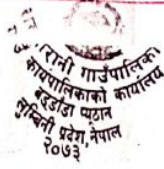 रानी गाउँपालिका
कार्यपालिकाको कार्यालय
प्यूठान
लुम्बिनी प्रदेश, नेपाल
२०७३